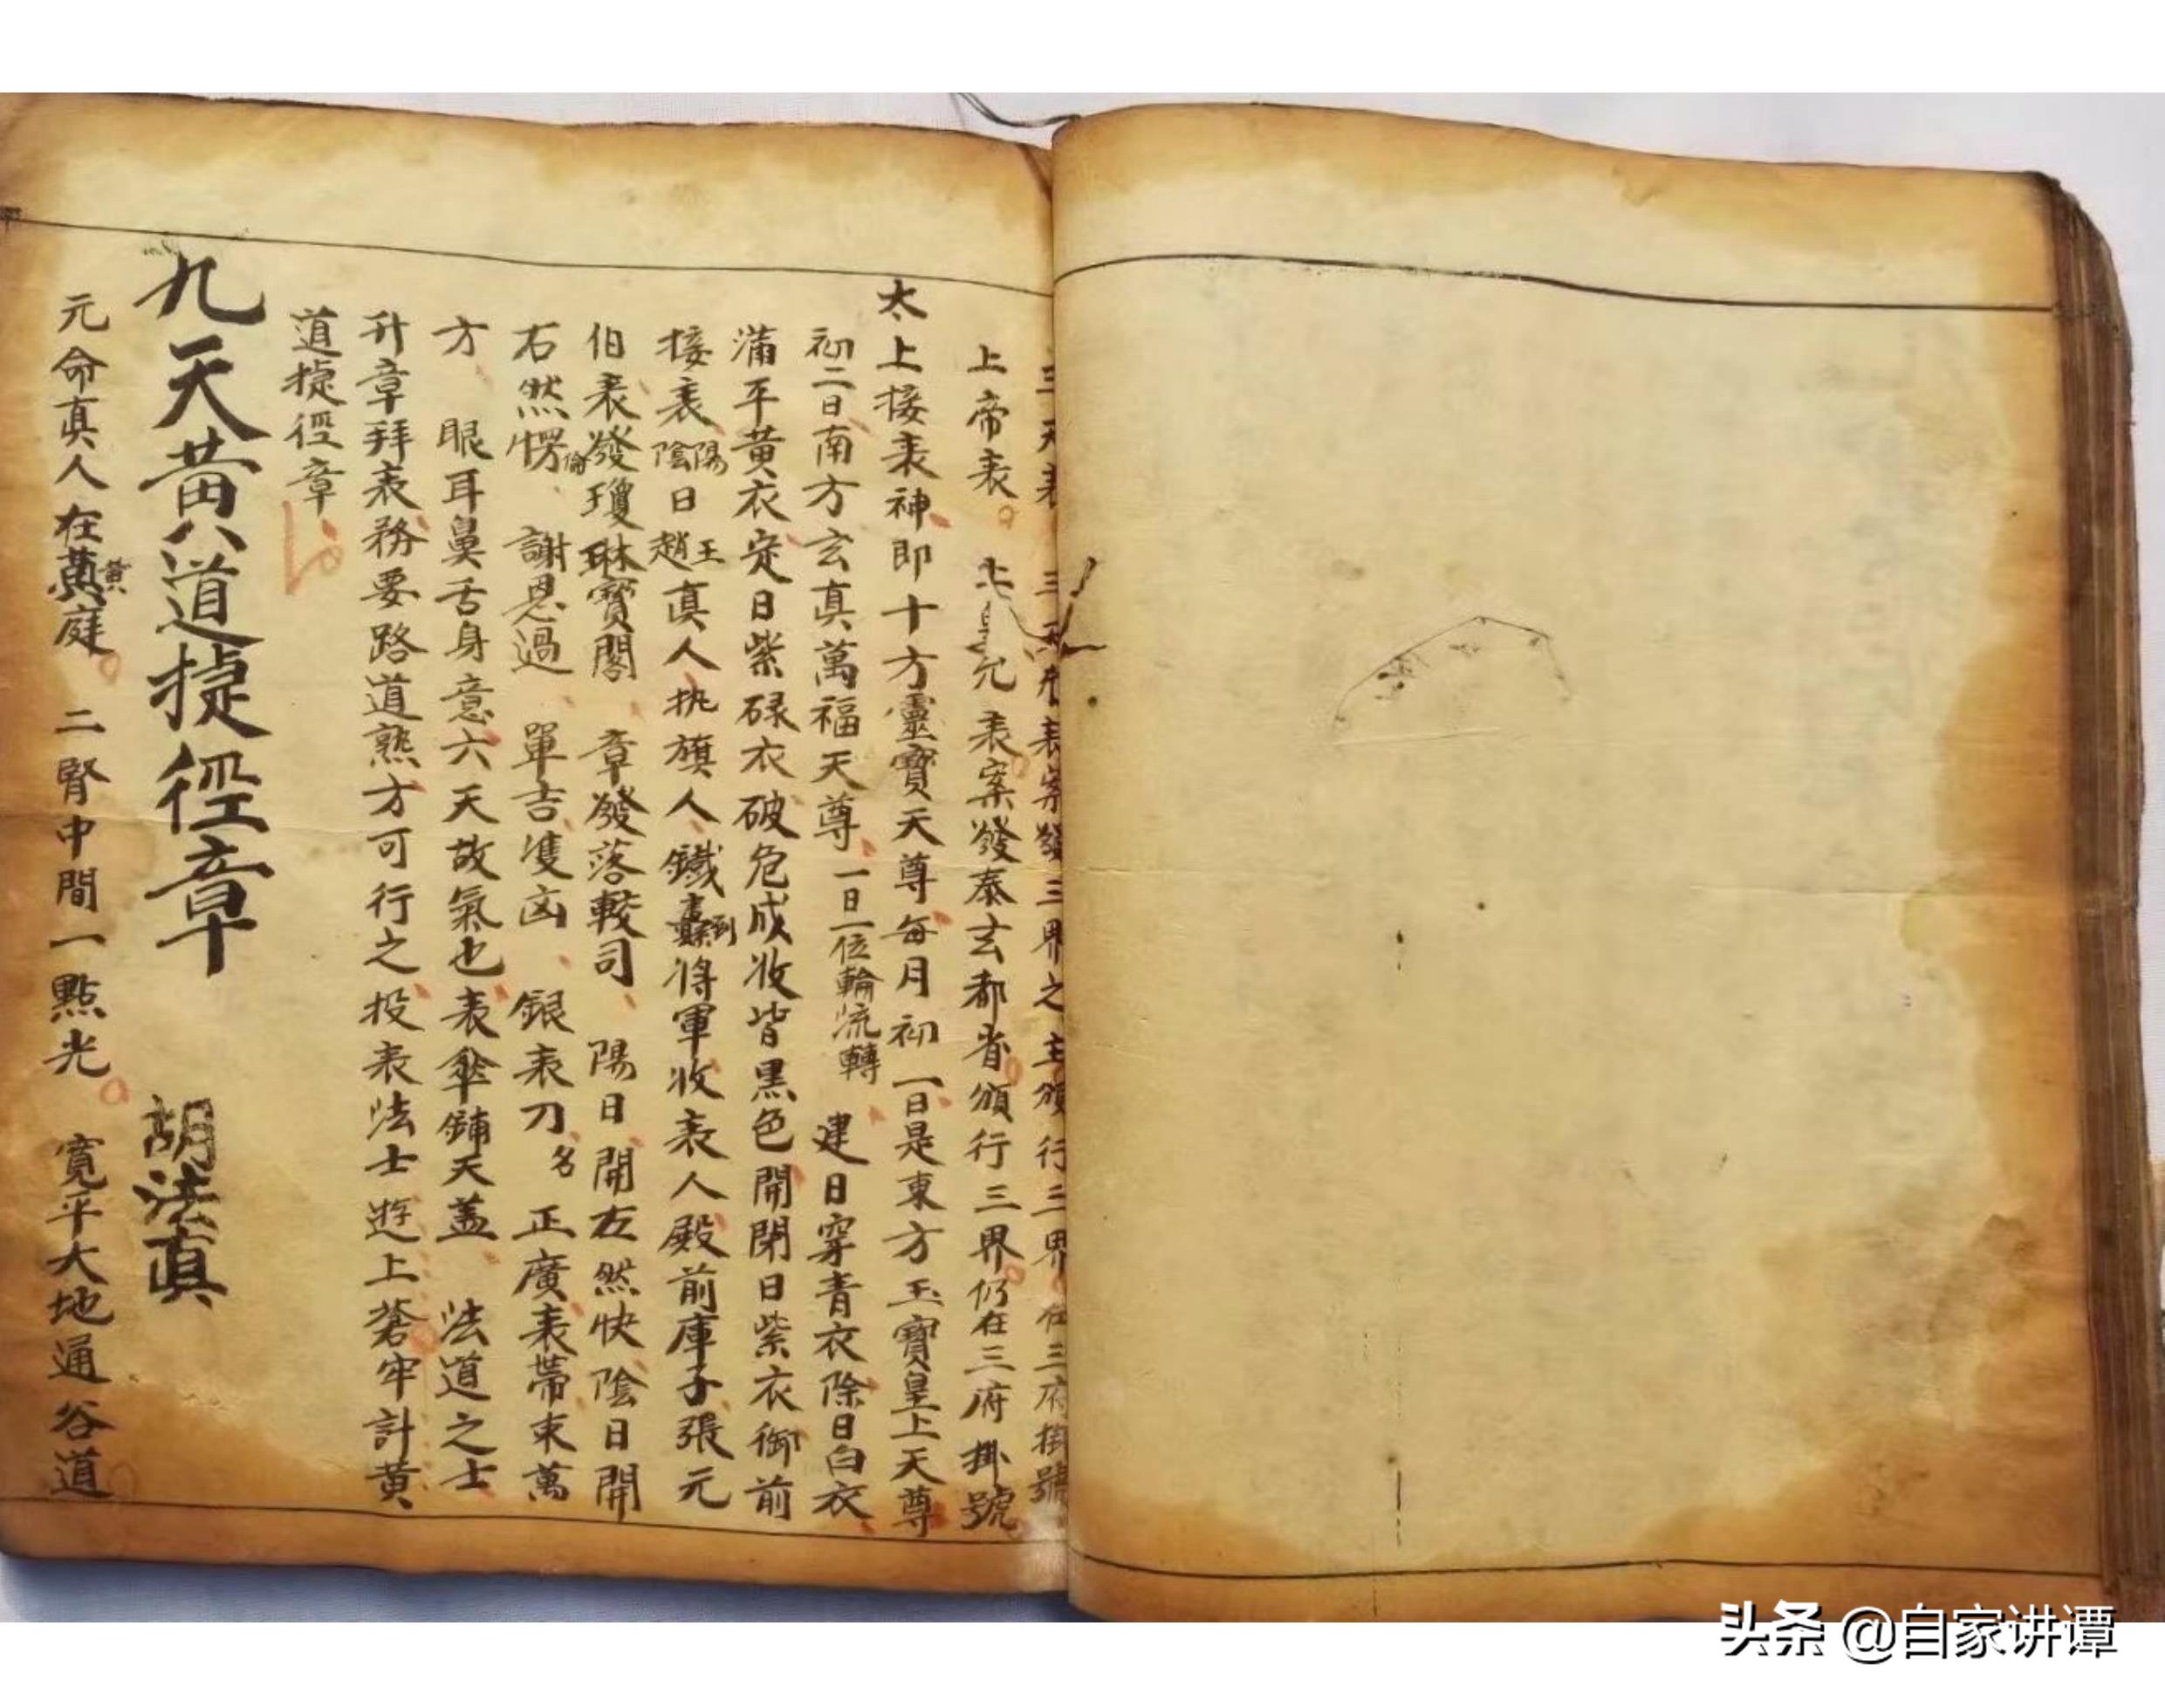 上帝表 上皇允表案發泰玄都省頒行三界仍在三府掛號
太上接表神即十方靈寶天尊每月初一日是東方玉寶皇上天尊
初二日南方玄真萬福天尊一日一位輪流轉 建日穿青衣除日白衣
滿平黃衣定日紫碌衣破危成收皆黑色開閉日紫衣御前
接表陽陰日王趙真人执旗人鐵將軍收表人殿前庫子張元
伯表發瓊琳寶閣 章發落較司 陽日開左然快陰日開
右然愣 謝恩過 單吉隻凶 銀表刀名正廣表帶束萬
方 眼耳鼻舌身意六天故氣也表傘鋪天蓋 法道之士
升章拜表務要路道熟方可行之投表法士遊上蒼牢計黃
道捷徑章
九天黃道捷徑章 胡法真
元命真人在黃庭 二腎中間一點光 寬平大地通谷道
头条 @自家讲谭